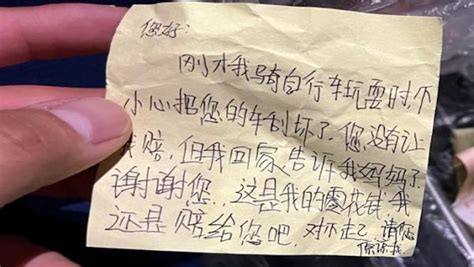 您好:
刚才我骑自行车玩耍时,不
小心把您的车刮坏了.您没有让
我赔,但我回家告诉我妈妈了.
谢谢您..这是我的零花钱我
还是赔给您吧.对不起 请您
原谅我.